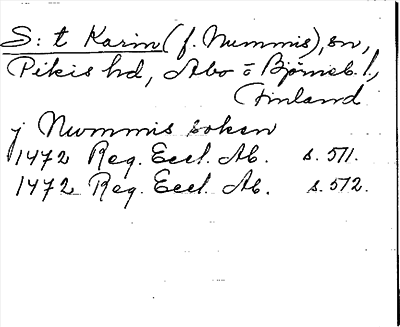 S:t Karin (f. Nummis), sn,
Pikis hd, Åbo o Björneb. l.,
Finland
j Nummis soken
1472 Reg. Eccl. Ab. s. 571.
1472 Reg. Eccl. Ab. s. 572.